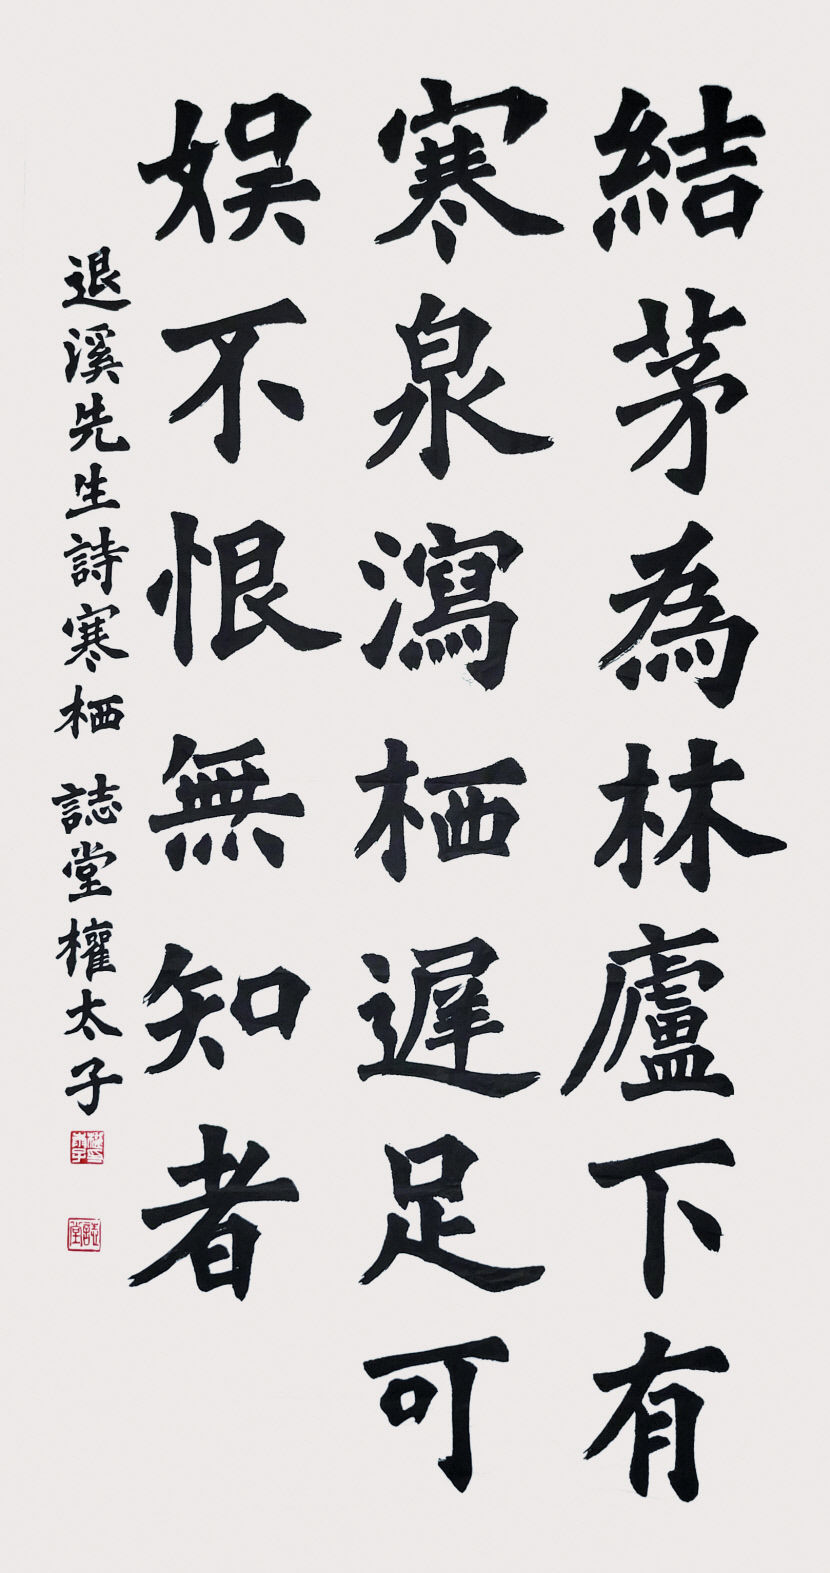 結茅為林廬下有
寒泉瀉栖遲足可
娛不恨無知者
退溪先生詩寒栖 誌堂權太子
誌堂